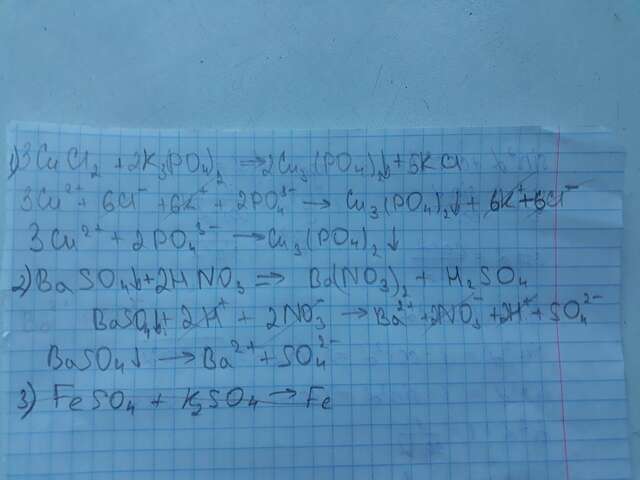 1) 3CuCl₂ + 2K₃(PO₄)₂ → 2Cu₃(PO₄)₂↓ + 6KCl
3Cu²⁺ + 6Cl⁻ + 6K⁺ + 2PO₄³⁻ → Cu₃(PO₄)₂↓ + 6K⁺ + 6Cl⁻
3Cu²⁺ + 2PO₄³⁻ → Cu₃(PO₄)₂↓
2) BaSO₄↓ + 2HNO₃ ⇒ Ba(NO₃)₂ + H₂SO₄
BaSO₄↓ + 2H⁺ + 2NO₃⁻ → Ba²⁺ + 2NO₃⁻ + 2H⁺ + SO₄²⁻
BaSO₄↓ → Ba²⁺ + SO₄²⁻
3) FeSO₄ + K₂SO₄ → Fe